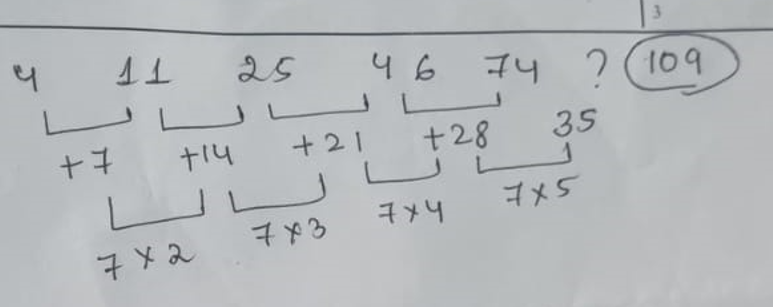 3
4 11 25 46 74 ? 109
+7 +14 +21 +28 35
7×2 7×3 7×4 7×5